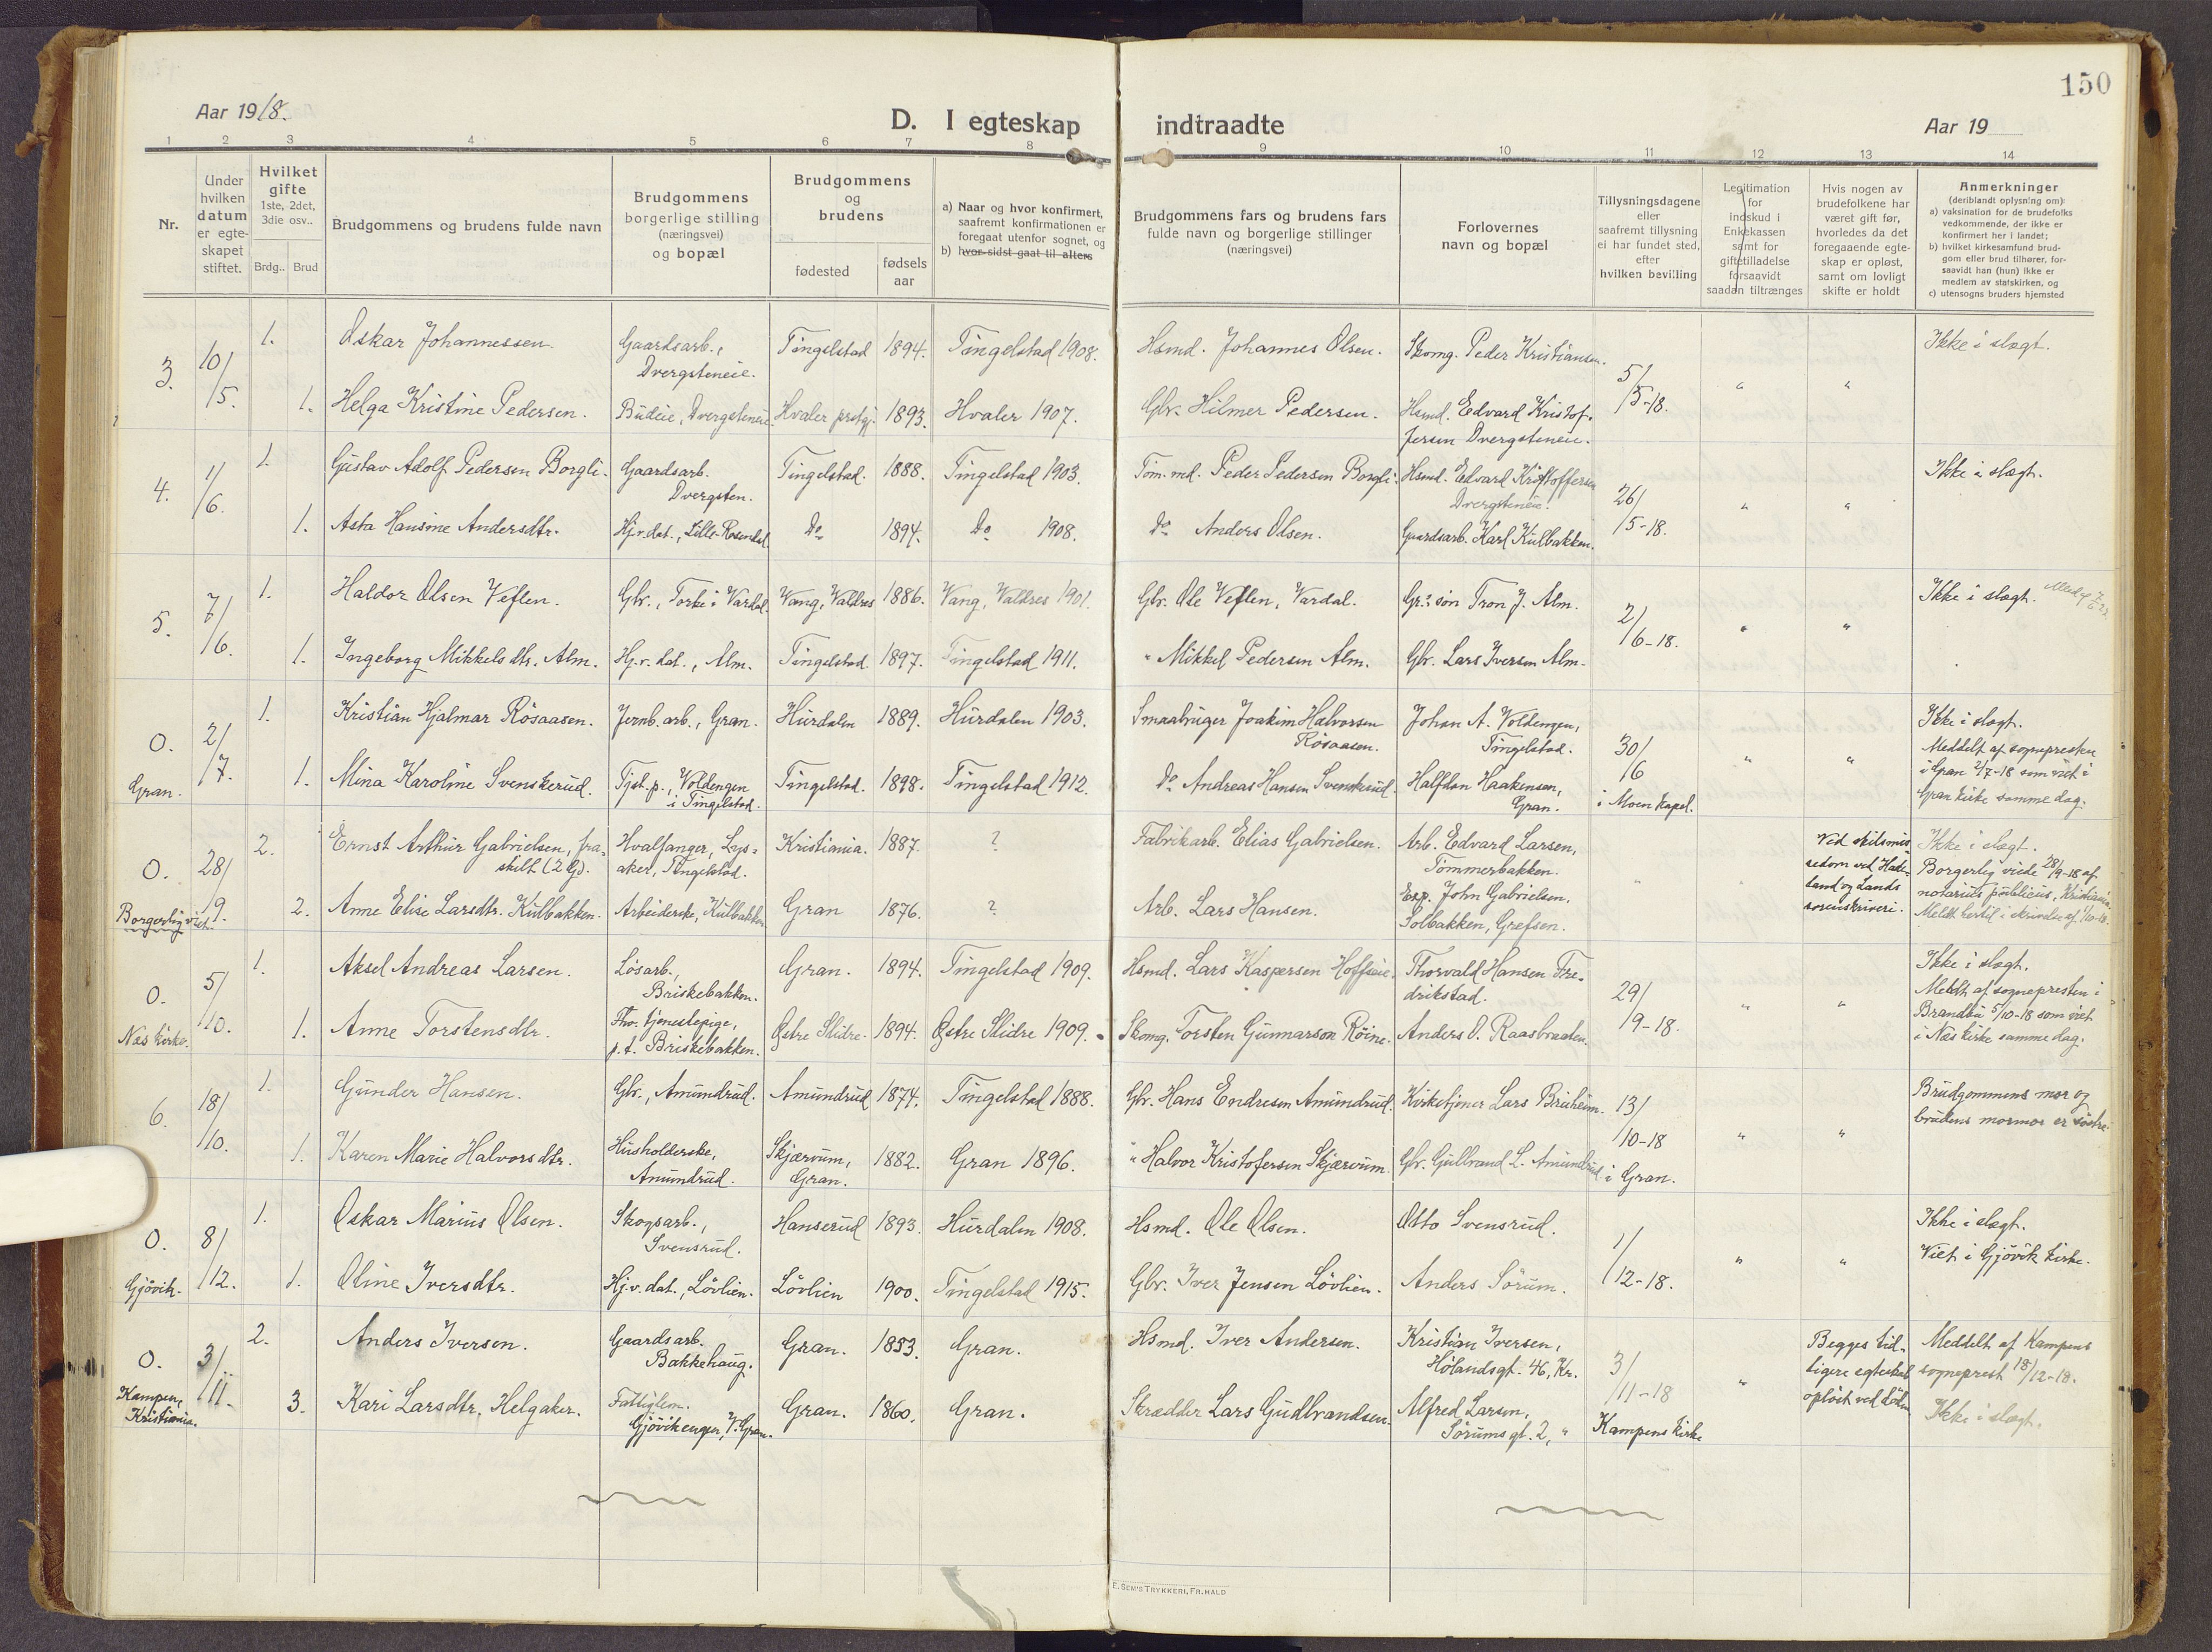 150
Aar 1918.
D. I egteskap indtraadte
Aar 19
1 2 3 4 5 6 7 8 9 10 11 12 13 14
Nr.
Under hvilken datum er egte-skapet stiftet.
Hvilket gifte 1ste, 2det, 3die osv..
Brdg.. Brud
Brudgommens og brudens fulde navn
Brudgommens borgerlige stilling (næringsvei) og bopæl
Brudgommens og brudens
fødested
fødsels aar
a) Naar og hvor konfirmert, saafremt konfirmationen er foregaat utenfor sognet, og
b) hvor sidst gaat til alters
Brudgommens fars og brudens fars fulde navn og borgerlige stillinger (næringsvei)
Forlovernes navn og bopæl
Tillysningsdagene eller saafremt tillysning ei har fundet sted, efter hvilken bevilling
Legitimation for indskud i Enkekassen samt for giftetilladelse forsaavidt saadan tiltrænges
Hvis nogen av brudefolkene har været gift før, hvorledes da det foregaaende egte-skap er opløst, samt om lovligt skifte er holdt
Anmerkninger (deriblandt oplysning om):
a) vaksination for de brudefolks vedkommende, der ikke er konfirmert her i landet;
b) hvilket kirkesamfund brud-gom eller brud tilhører, for-saavidt han (hun) ikke er medlem av statskirken, og
c) utensogns bruders hjemsted
3. 10/5. 1. Oskar Johannessen. Gaardsarb., Dvergsteneie. Tingelstad 1894. Tingelstad 1908. Hsmd. Johannes Olsen. Skomg. Peder Kristiansen. 5/5-18. " " Ikke i slægt.
1. Helga Kristine Pedersen. Budeie, Dvergsteneie. Hvaler prstgj. 1893. Hvaler 1907. Gbr. Hilmer Pedersen. Hsmd. Edvard Kristof-fersen Dvergsteneie.
4. 1/6. 1. Gustav Adolf Pedersen Borgli. Gaardsarb. Dvergsten. Tingelstad. 1888. Tingelstad 1903. Tøm.md. Peder Pedersen Borgli. Hsmd. Edvard Kristoffersen Dvergsteneie. 26/5-18. " " Ikke i slægt.
1. Asta Hansine Andersdtr. Hj.v.dat., Lille-Rosendal. Do 1894. Do 1908. Do Anders Olsen. Gaardsarb. Karl Kulbakken.
5. 7/6. 1. Haldor Olsen Veflen. Gbr., Torke i Vardal. Vang, Valdres 1886. Vang, Valdres 1901. Gbr. Ole Veflen, Vardal. Gr.: søn Tron J. Alm. 2/6-18. " " Ikke i slægt.
1. Ingeborg Mikkelsdtr. Alm. Hj.v.dat., Alm. Tingelstad 1897. Tingelstad 1911. " Mikkel Pedersen Alm. Gbr. Lars Iversen Alm.
O. Gran. 2/7. 1. Kristian Hjalmar Røsaasen. Jernb.arb., Gran. Hurdalen 1889. Hurdalen 1903. Smaabruger Joakim Halvorsen Røsaasen. Johan A. Voldengen, Tingelstad. 30/16 i Moen kapel. " " Ikke i slægt. Meddelt af sognepresten i Gran 2/7-18 som viet i Gran kirke samme dag.
1. Mina Karoline Svenskerud. Tjst.p., Voldengen i Tingelstad. Tingelstad. 1898. Tingelstad 1912. Do Andreas Hansen Svenskerud. Halfdan Haakensen, Gran.
O. Borgerlig viet. 28/9. 2. Ernst Arthur Gabrielsen, fra-skilt (2 G). Hvalfanger, Lys-aker, Tingelstad. Kristiania. 1887. ? Fabrikarb. Elias Gabrielsen. Arb. Edvard Larsen, Tømmerbakken. " Ved skilsmis-sedom ved Hade-land og Lands sorenskriveri. Ikke i slægt. Borgerlig viede 28/9-18 af notarius publicus, Kristiania. Meldt hertil i skrivelse af 1/10-18.
2. Anne Elise Larsdtr. Kulbakken. Arbeiderske, Kulbakken. Gran 1876. ? Arb. Lars Hansen. Exp. John Gabrielsen. Solbakken, Grefsen.
O. Næs kirke. 5/10. 1. Aksel Andreas Larsen. Løsarb., Briskebakken. Gran. 1894. Tingelstad 1909. Hsmd. Lars Kaspersen Hoffseie. Thorvald Hansen Fre-drikstad. 29/9-18. " " Ikke i slægt. Meldt af sognepresten i Brandbu 5/10-18 som viet i Næs kirke samme dag.
1. Anne Torstensdtr. Fhv. tjenestepige, p.t. Briskebakken. Østre Slidre. 1894. Østre Slidre 1909. Skomg. Torsten Gunnarson Røine. Anders O. Raasbraaten.
6. 18/10. 1. Gunder Hansen. Gbr., Amundrud. Amundrud 1874. Tingelstad 1888. Gbr. Hans Endresen Amundrud. Kirketjener Lars Bruheim. 13/10-18 i Gran. " " Brudgommens mor og brudens mormor er søstre.
1. Karen Marie Halvorsdtr. Husholderske, Amundrud. Skjærvum, Gran. 1882. Gran 1896. " Halvor Kristofersen Skjærvum. Gbr. Gulbrand L. Amundrud
O. Gjøvik. 8/12. 1. Oskar Marius Olsen. Skogsarb., Svensrud. Hanserud 1893. Hurdalen 1908. Hsmd. Ole Olsen. Otto Svensrud. 1/12-18. " " Ikke i slægt. Viet i Gjøvik kirke.
1. Oline Iversdtr. Hj.v.dat., Løvlien. Løvlien 1900. Tingelstad 1915. Gbr. Iver Jensen Løvlien. Anders Sørum.
O. Kampen, Kristiania. 3/11. 2. Anders Iversen. Gaardsarb. Bakkehaug. Gran. 1853. Gran. Hsmd. Iver Andersen. Kristian Iversen, Hølandsgt. 46, Kr. 3/11-18 Kampens kirke " Begges tid-ligere egteskab opløst ved døden Meddelt af Kampens sogneprest 18/12-18. Ikke i slægt.
3. Kari Larsdtr. Helgaker. Fattiglem. Gjøvikenger, V. Gran. Gran. 1860. Gran. Skrædder Lars Gudbrandsen. Alfred Larsen, Sørumsgt. 2, "
E. SEM'S TRYKKERI, FR.HALD